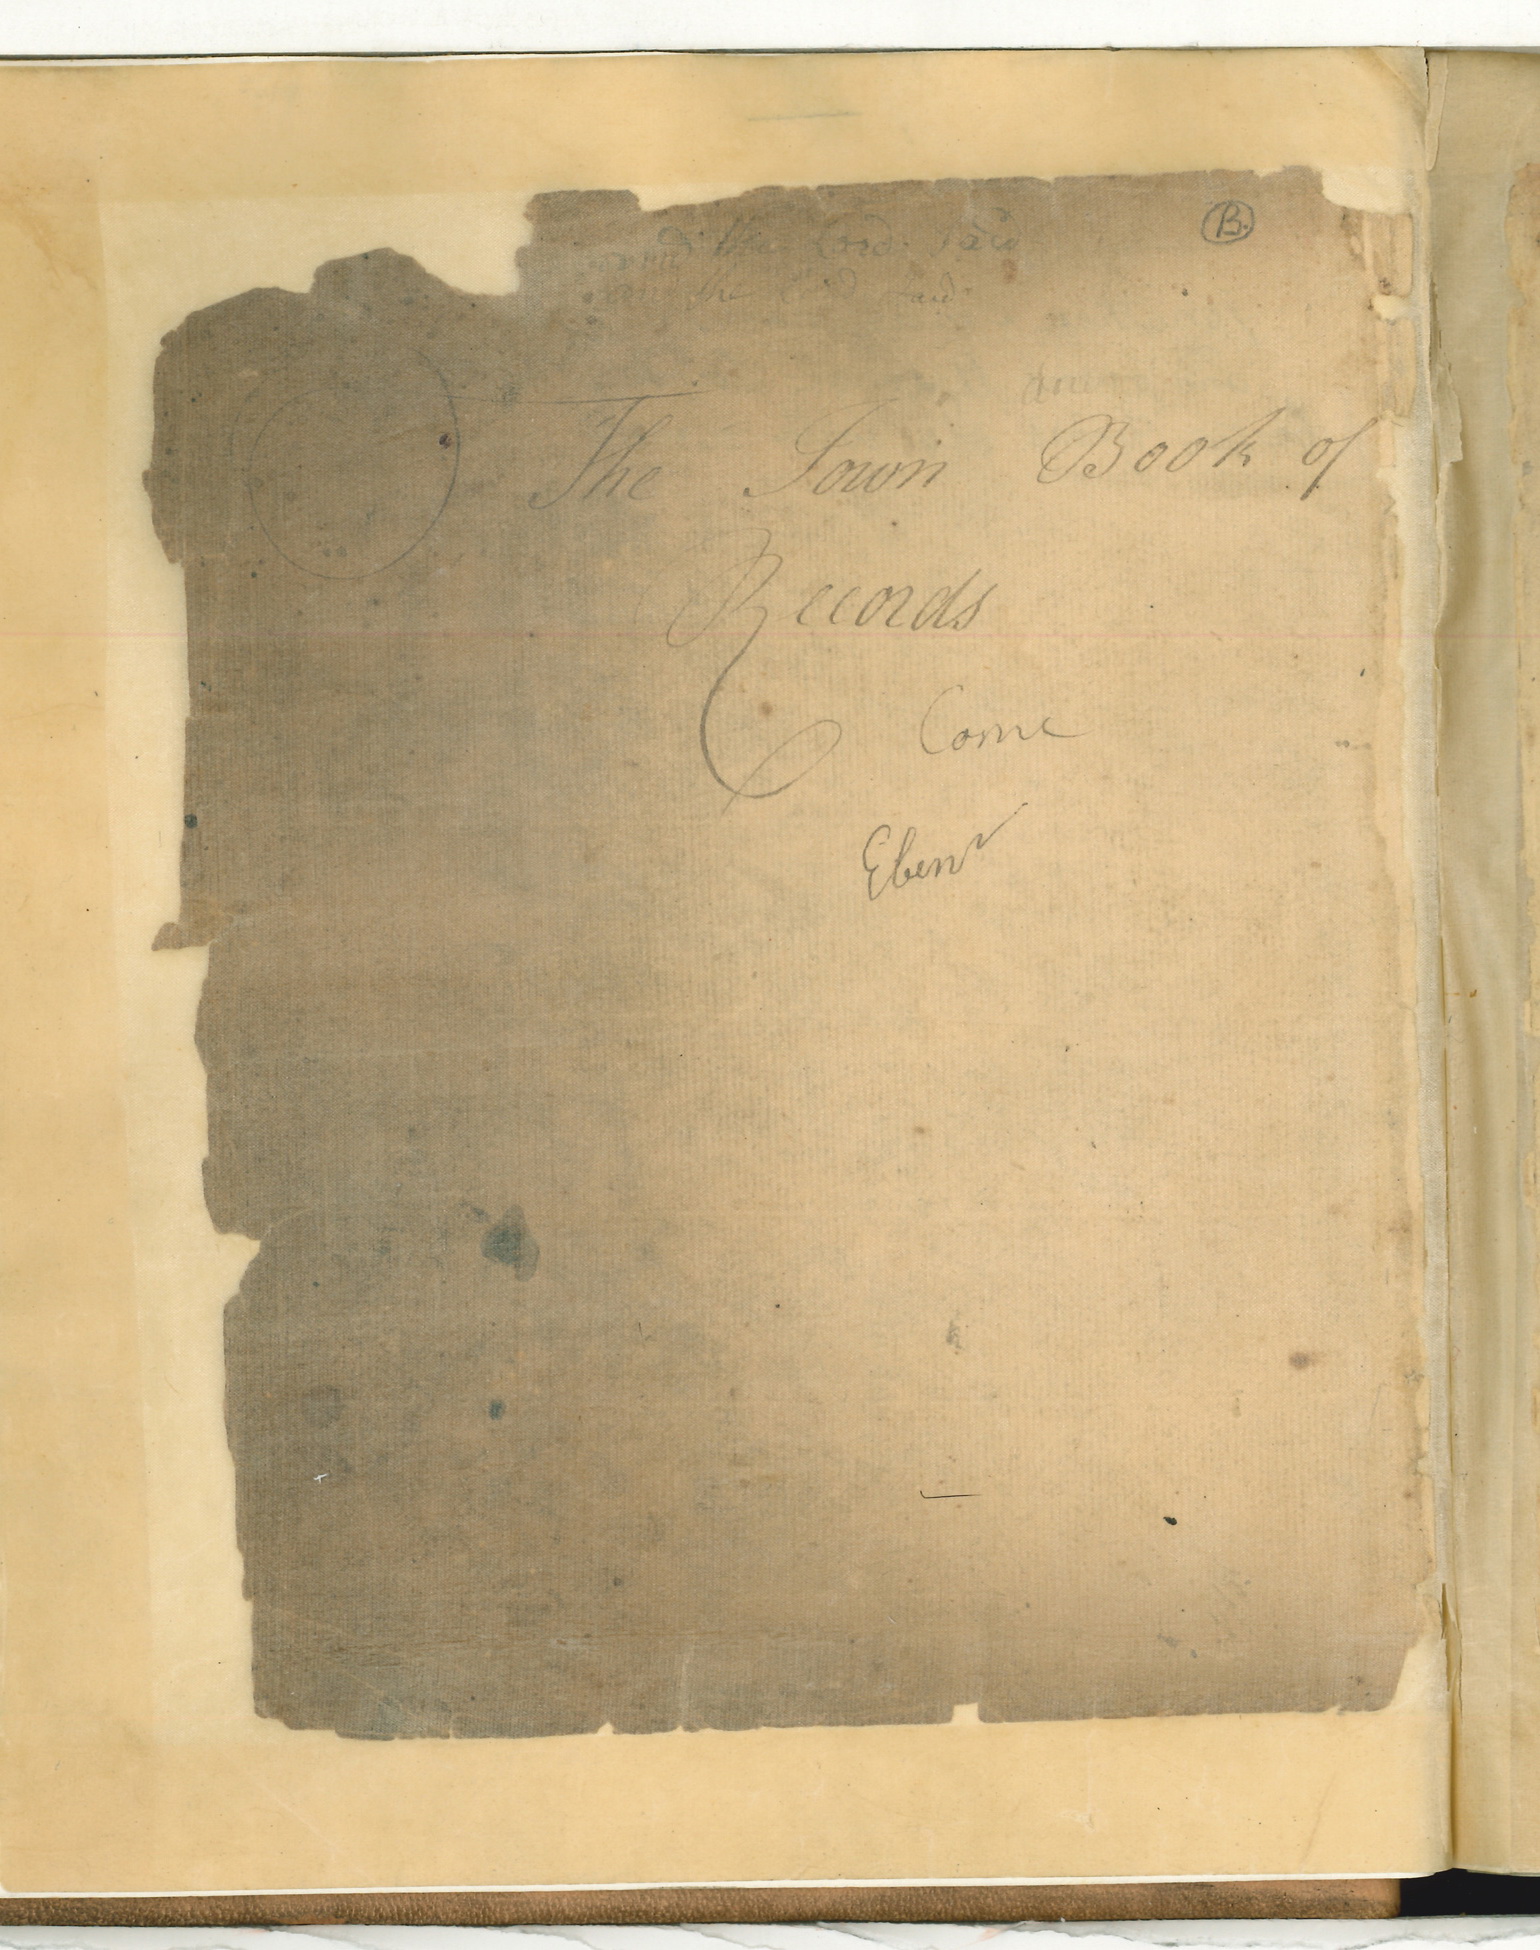 B.
and the Lord said
and the Lord said
The Town Book of
Records
Come
Ebenr